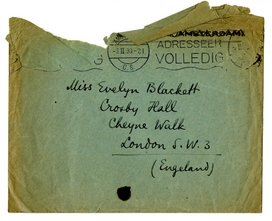 AMSTERDAM
ADRESSEER
VOLLEDIG
Miss Evelyn Blackett
Crosby Hall
Cheyne Walk
London S.W.3
(Engeland)